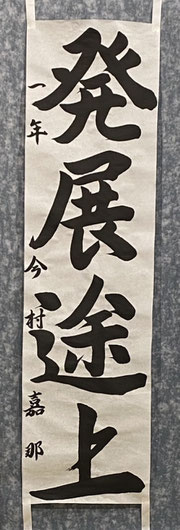 発展途上
一年 今村嘉那